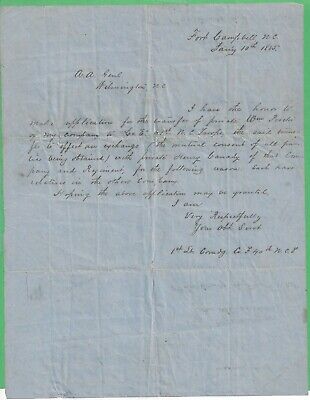 Fort Campbell, N.C.
Jany 10th 1865.
A. A. Genl
Wilmington, N.C.
I have the honor to
make application for the transfer of private Wm
of my company to Co. E. N.C. Troops, the said
to effect an exchange (the mutual consent of all par-
ties being obtained) with private Henry Canady of that Com-
pany and Regiment, for the following reason each have
relatives in the others Company.
Hoping the above application may be granted,
I am
Very Respectfully
Your Obt Servt
1st Lt. Comdg Co. F 40th N.C.T